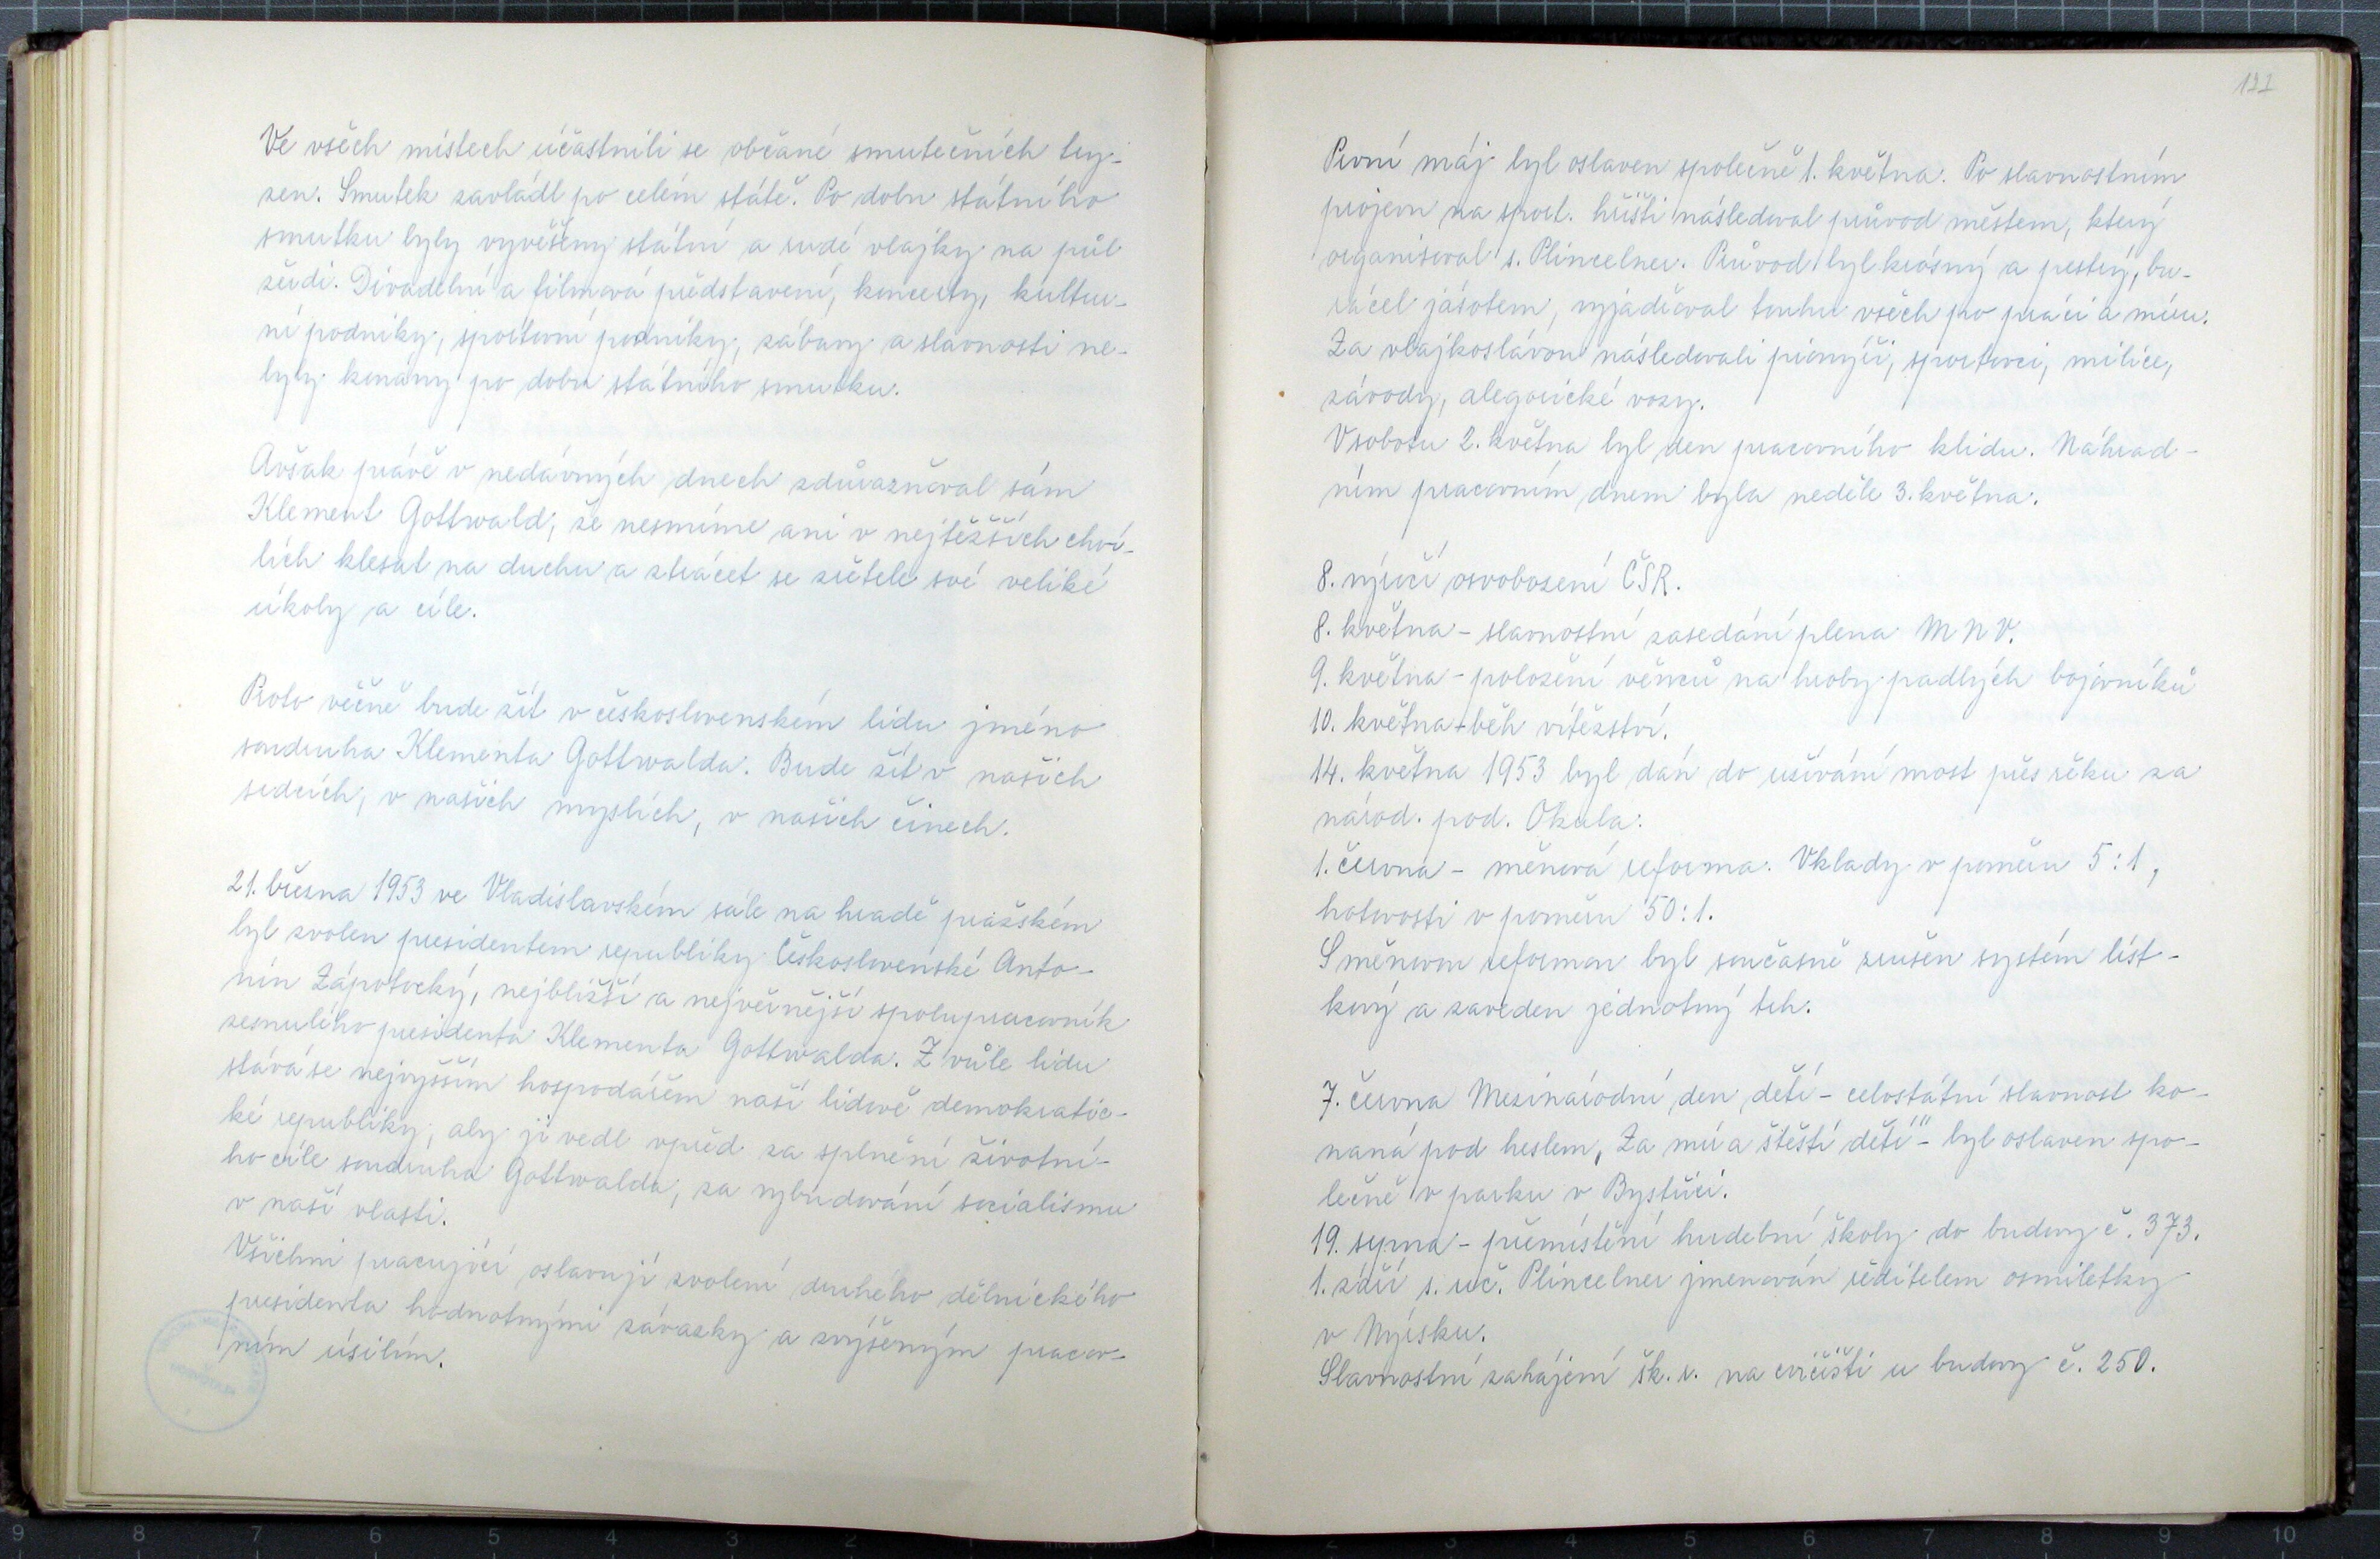 Ve všech místech účastnili se občané smutečních try-
zen. Smutek zavládl po celém státě. Po dobu státního
smutku byly vyvěšeny státní a rudé vlajky na půl
žrdi. Divadelní a filmová představení, koncerty, kultur-
ní podniky, sportovní podniky, zábavy a slavnosti ne-
byly konány po dobu státního smutku.
Avšak právě v nedávných dnech zdůrazňoval sám
Klement Gottwald, že nesmíme ani v nejtěžších chví-
lích klesat na duchu a ztrácet se zřetele své veliké
úkoly a cíle.
Proto věčně bude žít v československém lidu jméno
soudruha Klementa Gottwalda. Bude žít v našich
srdcích, v našich myslích, v našich činech.
21. března 1953 ve Vladislavském sále na hradě pražském
byl zvolen presidentem republiky Československé Anto-
nín Zápotocký, nejbližší a nejvěrnější spolupracovník
zesnulého presidenta Klementa Gottwalda. Z vůle lidu
stává se nejvyšším hospodářem naší lidově demokratic-
ké republiky, aby ji vedl vpřed za splnění životní-
ho cíle soudruha Gottwalda, za vybudování socialismu
v naší vlasti.
Všichni pracující oslavují zvolení druhého dělnického
presidenta hodnotnými závazky a zvýšeným pracov-
ním úsilím.
121
První máj byl oslaven společně 1. května. Po slavnostním
projevu na sport. hřišti následoval průvod městem, který
organisoval s. Plincelner. Průvod byl krásný a pestrý, bu-
rácel jásotem, vyjadřoval touhu všech po práci a míru.
Za vlajkoslávou následovali pionýři, sportovci, milice,
závody, alegorické vozy.
V sobotu 2. května byl den pracovního klidu. Náhrad-
ním pracovním dnem byla neděle 3. května.
8. výročí osvobození ČSR.
8. května - slavnostní zasedání plena MNV.
9. května - položení věnců na hroby padlých bojovníků
10. května - běh vítězství.
14. května 1953 byl dán do užívání most přes řeku za
národ. pod. Okula.
1. června - měnová reforma. Vklady v poměru 5:1,
hotovosti v poměru 50:1.
S měnovou reformou byl současně zrušen systém líst-
kový a zaveden jednotný trh.
7. června Mezinárodní den dětí - celostátní slavnost ko-
naná pod heslem „Za mír a štěstí dětí" - byl oslaven spo-
lečně v parku v Bystřici.
19. srpna - přemístění hudební školy do budovy č. 373.
1. září s. uč. Plincelner jmenován ředitelem osmiletky
v Nýrsku.
Slavnostní zahájení šk. r. na cvičišti u budovy č. 250.